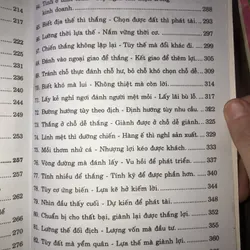 214
216
252
254
257
257
260
262
264
266
kinh doanh
62. Biết địa thế thì thắng - Chọn được đất thì phát tài. 277
65. Lường thời lựa thế - Nắm vững thời cơ. 288
Chiến thắng không lặp lại - Tùy thế mà đổi khác đi. 297
Đánh vào ngoại giao để thắng - Kết giao để thêm lợi. 302
Tránh chỗ thực đánh chỗ hư, bỏ chỗ khó chọn chỗ dễ. 303
70. Biết khó mà lui - Không thiệt mà còn lời. 311
71. Lấy kẻ nghỉ ngơi đánh người mệt mỏi - Lấy lãi bù lỗ. 318
72. Đương hướng tùy theo địch - Định hướng tùy nhu cầu. 325
73. Thắng ở chỗ dễ thắng - Giành được ở chỗ dễ giành. 328
74. Linh mệt thì dưỡng chiến - Hàng ế thì nghỉ sản xuất. 335
75. Mồi thơm nhử cá - Nhượng lợi kéo được khách. 340
76. Vòng đường mà đánh lấy - Vu hồi để phát triển. 345
77. Tính nhiều để thắng - Tính kỹ để được phần hơn. 349
78. Tùy cơ ứng biến - Lựa kẽ hở kiếm lời. 353
79. Nhìn dấu thấy cuối - Dự kiến để phát tài. 357
80. Chuẩn bị cho thất bại, giành lại được thắng lợi. 360
81. Lường thế đối địch - Lượng vốn mà đầu tư.
Tùy đất mà yểm quân - Lựa thế mà giành lợi.